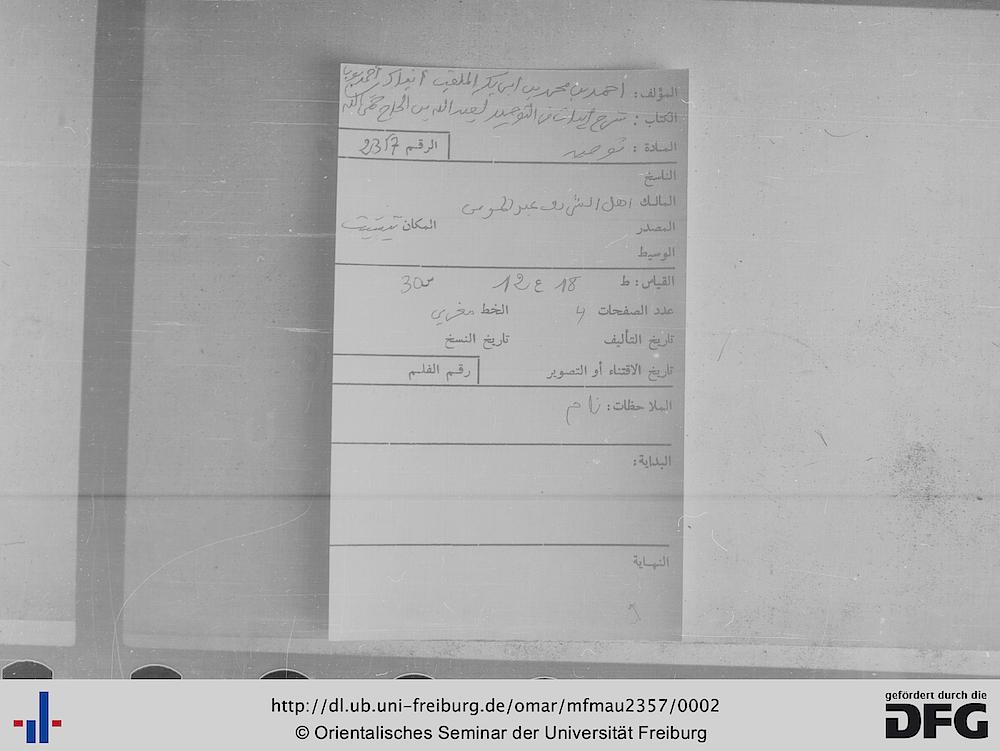 المؤلف: احمد بن محمد بن ابي بكر الملقب
الكتاب: شرح أبيات في التوحيد لعبد الله بن الحاج حمى الله
المادة: توحيد
الرقم 2357
الناسخ
المالك اهل الشريف
المصدر
المكان تيشيت
الوسيط
القياس: ط 18 ع 12 س 30
عدد الصفحات 4 الخط مغربي
تاريخ التأليف تاريخ النسخ
تاريخ الاقتناء أو التصوير رقم الفلم
الملاحظات: تام
البداية:
النهاية
http://dl.ub.uni-freiburg.de/omar/mfmau2357/0002
© Orientalisches Seminar der Universität Freiburg
gefördert durch die
DFG